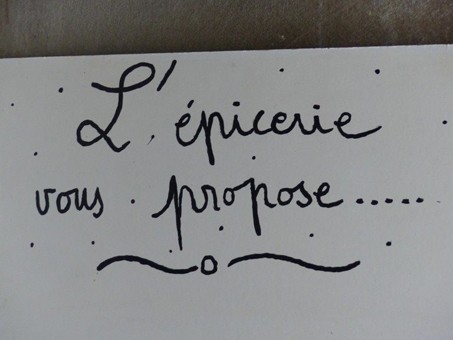 L'épicerie
vous propose.....